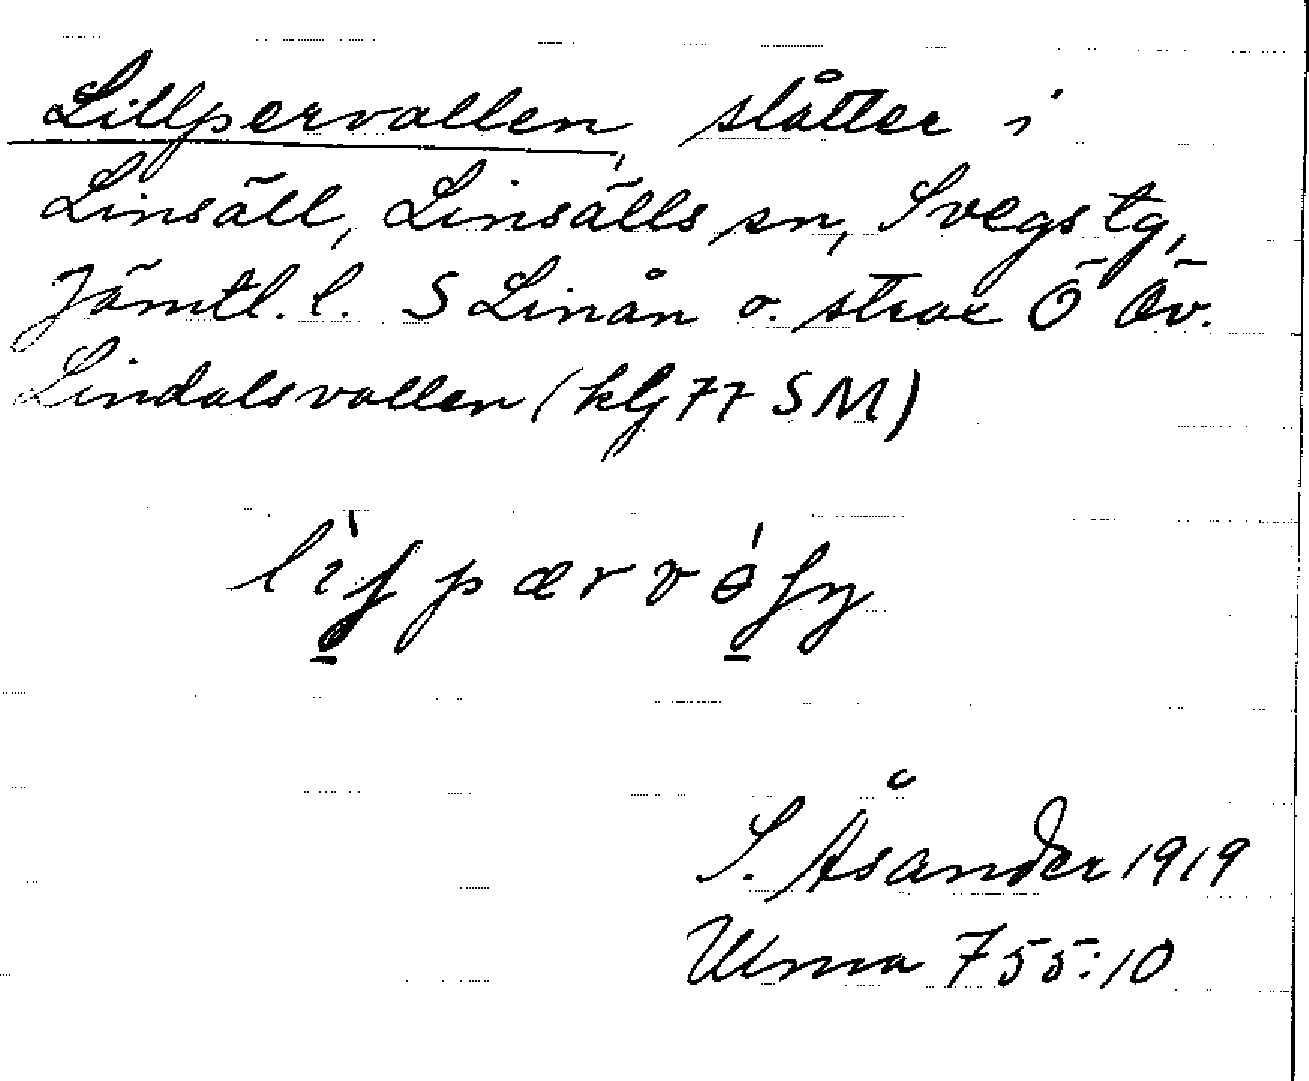 Lillpervallen, slåtter i
Linsäll, Linsälls sn, Svegs tg,
Jämtl. l. S Linån o. strax Ö Öv.
Lindalsvallen (klj 77 SM)
S. Åsander 1919
Ulma 755:10